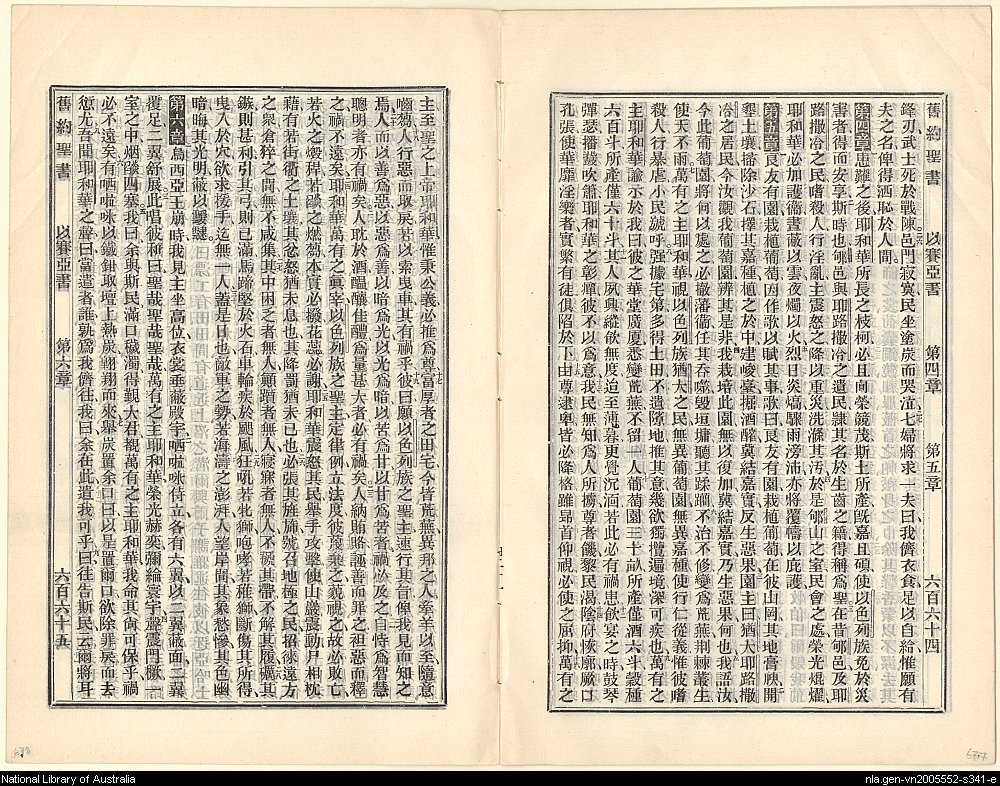 舊約聖書　以賽亞書　第四章　第五章　六百六十四
鋒刃武士死於戰陳邑門寂寞民坐塗炭而哭泣七婦將求一夫曰我儕衣食足以自給惟願有
夫之名俾得洒恥於人間
第四章患難之後耶和華所長之枝柯必且向榮鏡茂斯土所產旣嘉且碩使以色列族免於災
書者得而安享斯時也郇邑與耶路撒冷之遺民隸其名於生齒之籍得稱爲聖在昔郇邑及耶
路撒冷之民嗜殺人行淫亂主震怒之降以重災洗滌其汚於是郇山之室民會之處榮光焜燿
耶和華必加護衞晝蔽以雲夜燭以火烈日炎熇驟雨滂沛亦將覆幬以庇護
第五章良友有園栽植葡萄因作歌以賦其事歌曰良友有園栽植葡萄在彼山岡其地膏腴開
墾土壤掃除沙石擇其嘉種植之於中建崚臺掘酒醡冀結嘉實反生惡果園主曰猶大耶路撒
冷之居民今汝觀我葡萄園辨其是非我栽培此園無以復加冀結嘉實乃生惡果何也我語汝
今此葡萄園將何以處之必撤藩籬任其吞噬毀垣墉聽其蹂躪不治不修變爲荒蕪荊棘叢生
使天不雨萬有之主耶和華視以色列族猶大之民無異葡萄園無異嘉種使行仁從義惟彼嗜
殺人行暴虐小民號呼强據宅第多得土田不遺隙地推其意幾欲獨攬遍境深可疾也萬有之
主耶和華諭示於我曰彼之華堂廣厦悉變荒蕪不留一人葡萄園三十畝所產僅酒六斗穀種
六百斗所產僅六十斗其人夙興縱飲無度迨至薄暮更覺沉湎若此必有禍患飲宴之時鼓琴
彈瑟播鼗吹簫耶和華之彰癉彼不以爲意我民無知爲人所擄尊者饑黎民渴陰府恢廓厥口
孔張使華靡淫樂者實繁有徒俱陷於下由尊逮卑皆必降格雖昂首仰視必使之屈抑萬有之
主至聖之上帝耶和華惟秉公義必推爲尊富厚者之田宅今皆荒蕪異邦之人牽羊以至隨意
嚙芻人行惡而取戾若以索曳車其有禍乎彼曰願以色列族之聖主速行其旨俾我見而知之
焉人而以善爲惡以惡爲善以暗爲光以光爲暗以苦爲甘以甘爲苦者禍必及之自恃爲智慧
聰明者亦有禍矣人耽於酒醞釀佳醴爲量甚大者必有禍矣人納賄賂誣善而罪之袒惡而釋
之禍不遠矣耶和華萬有之眞宰以色列族之聖主定律例立法度彼蔑棄之藐視之故必敗亡
若火之燬稈若燄之燃芻本實必撥花蕊必謝耶和華震怒其民舉手攻擊使山嶽震動尸相枕
藉有若街衢之土壤其忿怒猶未息也其降罰猶未已也必張其旌旆號召地極之民招徠遠方
之衆倉猝之間無不咸集其中困乏者無人顚躓者無人寢寐者無人不褫其帶不解其履礪其
鏃則甚利引其弓則已滿馬蹄堅於火石車輪疾於飈風狂吼若牝獅咆哮若稚獅斷傷其所得
曳入於穴欲求援手迄無一人蓋是日也敵軍之勢若海濤之澎湃人望岸間其菜愁慘其色幽
暗晦其光明蔽以靉靆
第六章烏西亞王崩時我見主坐高位衣裳垂蔽殿宇㗰㘔㖠侍立各有六翼以二翼蔽面二翼
覆足二翼舒展此唱彼和曰聖哉聖哉聖哉萬有之主耶和華榮光赫奕彌綸寰宇聲震門橛一
室之中烟燄四塞我曰余與斯民滿口穢濁得覲大君覩萬有之主耶和華我命其尙可保乎禍
必不遠矣有㗰㘔㖠以鐵鉗取壇上熱炭翺翔而來舉炭置余口曰以是置爾口欲除罪戾而去
愆尤吾聞耶和華之聲曰當遣者誰孰爲我儕往我曰余在此遣我可乎曰往告斯民云爾將耳
舊約聖書　以賽亞書　第六章　六百六十五
638
637
National Library of Australia
nla.gen-vn2005552-s341-e